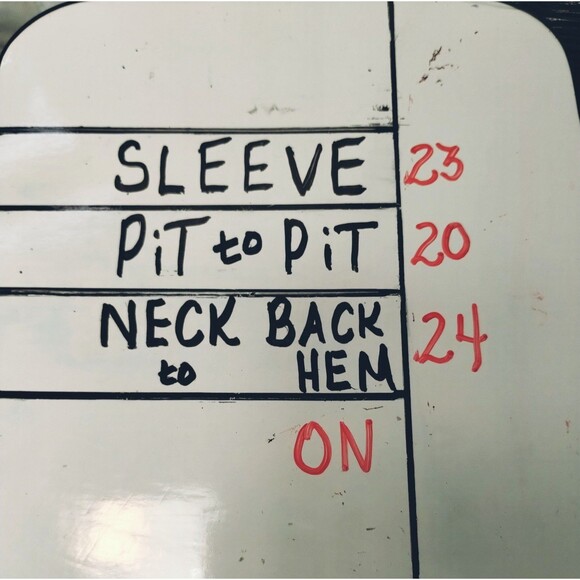 SLEEVE 23
PiT to PiT 20
NECK BACK
to HEM 24
ON